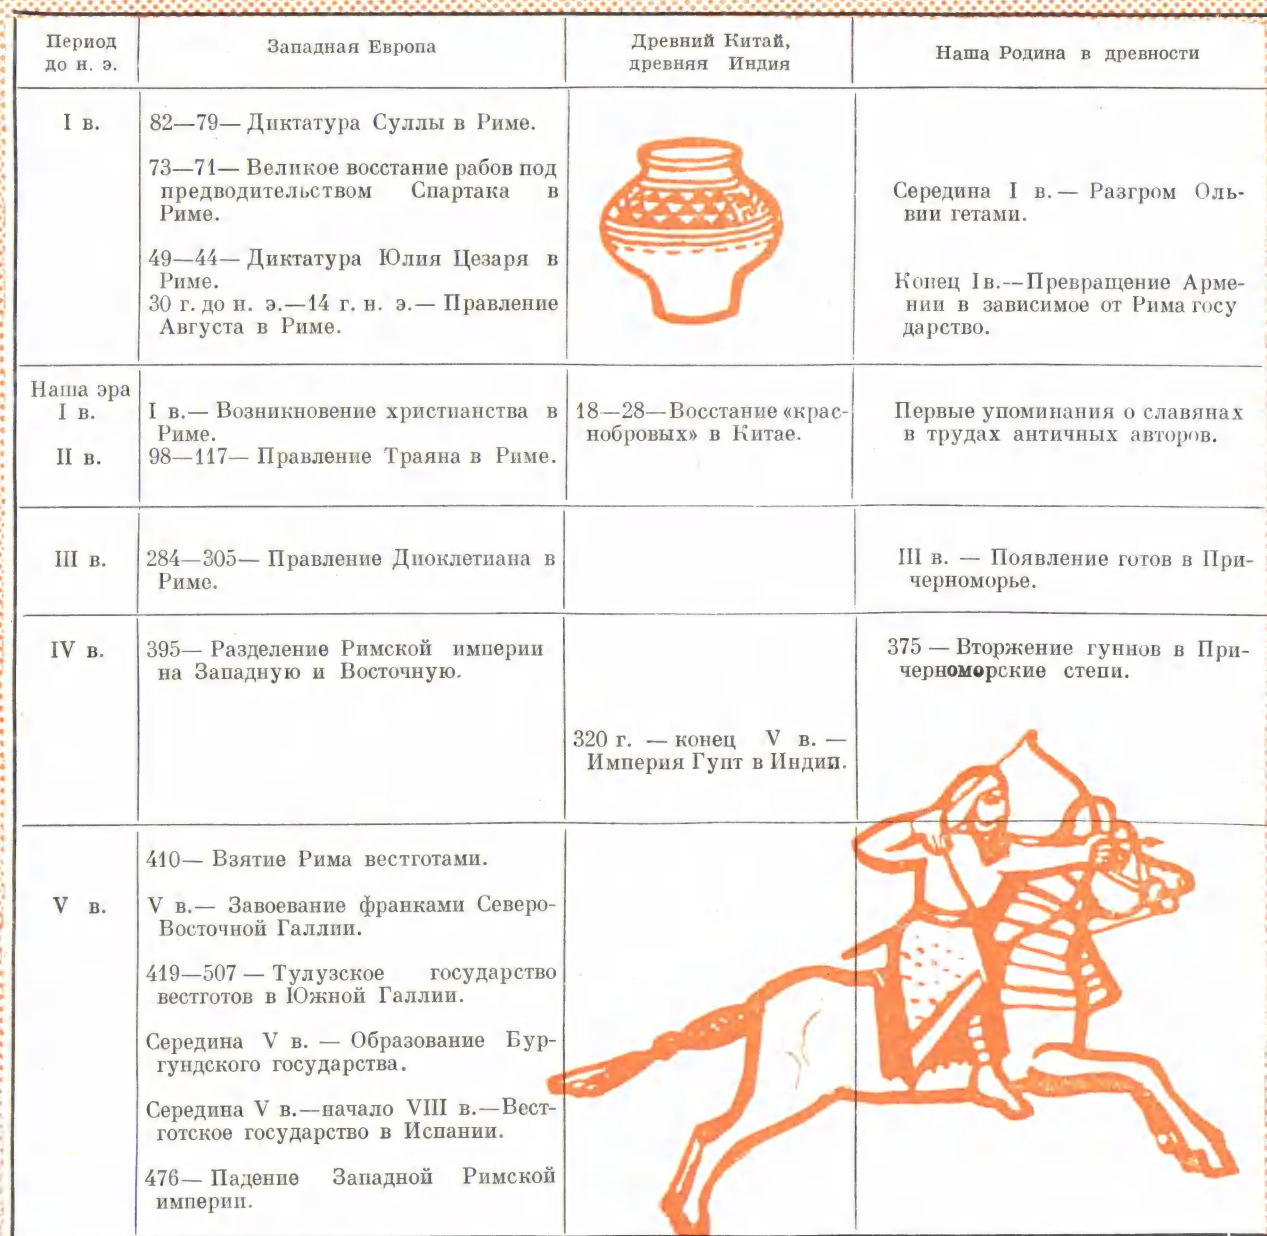 Период
до н. э.
Западная Европа
Древний Китай,
древняя Индия
Наша Родина в древности
I в.
82—79— Диктатура Суллы в Риме.
73—71— Великое восстание рабов под
предводительством Спартака в
Риме.
49—44— Диктатура Юлия Цезаря в
Риме.
30 г. до н. э.—14 г. н. э.— Правление
Августа в Риме.
Середина I в.— Разгром Оль-
вии гетами.
Конец Iв.—Превращение Арме-
нии в зависимое от Рима госу
дарство.
Наша эра
I в.
I в.— Возникновение христианства в
Риме.
18—28—Восстание «крас-
нобровых» в Китае.
Первые упоминания о славянах
в трудах античных авторов.
II в.
98—117— Правление Траяна в Риме.
III в.
284—305— Правление Диоклетиана в
Риме.
III в. — Появление готов в При-
черноморье.
IV в.
395— Разделение Римской империи
на Западную и Восточную.
320 г. — конец V в. —
Империя Гупт в Индии.
375 — Вторжение гуннов в При-
черноморские степи.
V в.
410— Взятие Рима вестготами.
V в.— Завоевание франками Северо-
Восточной Галлии.
419—507 — Тулузское государство
вестготов в Южной Галлии.
Середина V в. — Образование Бур-
гундского государства.
Середина V в.—начало VIII в.—Вест-
готское государство в Испании.
476— Падение Западной Римской
империи.